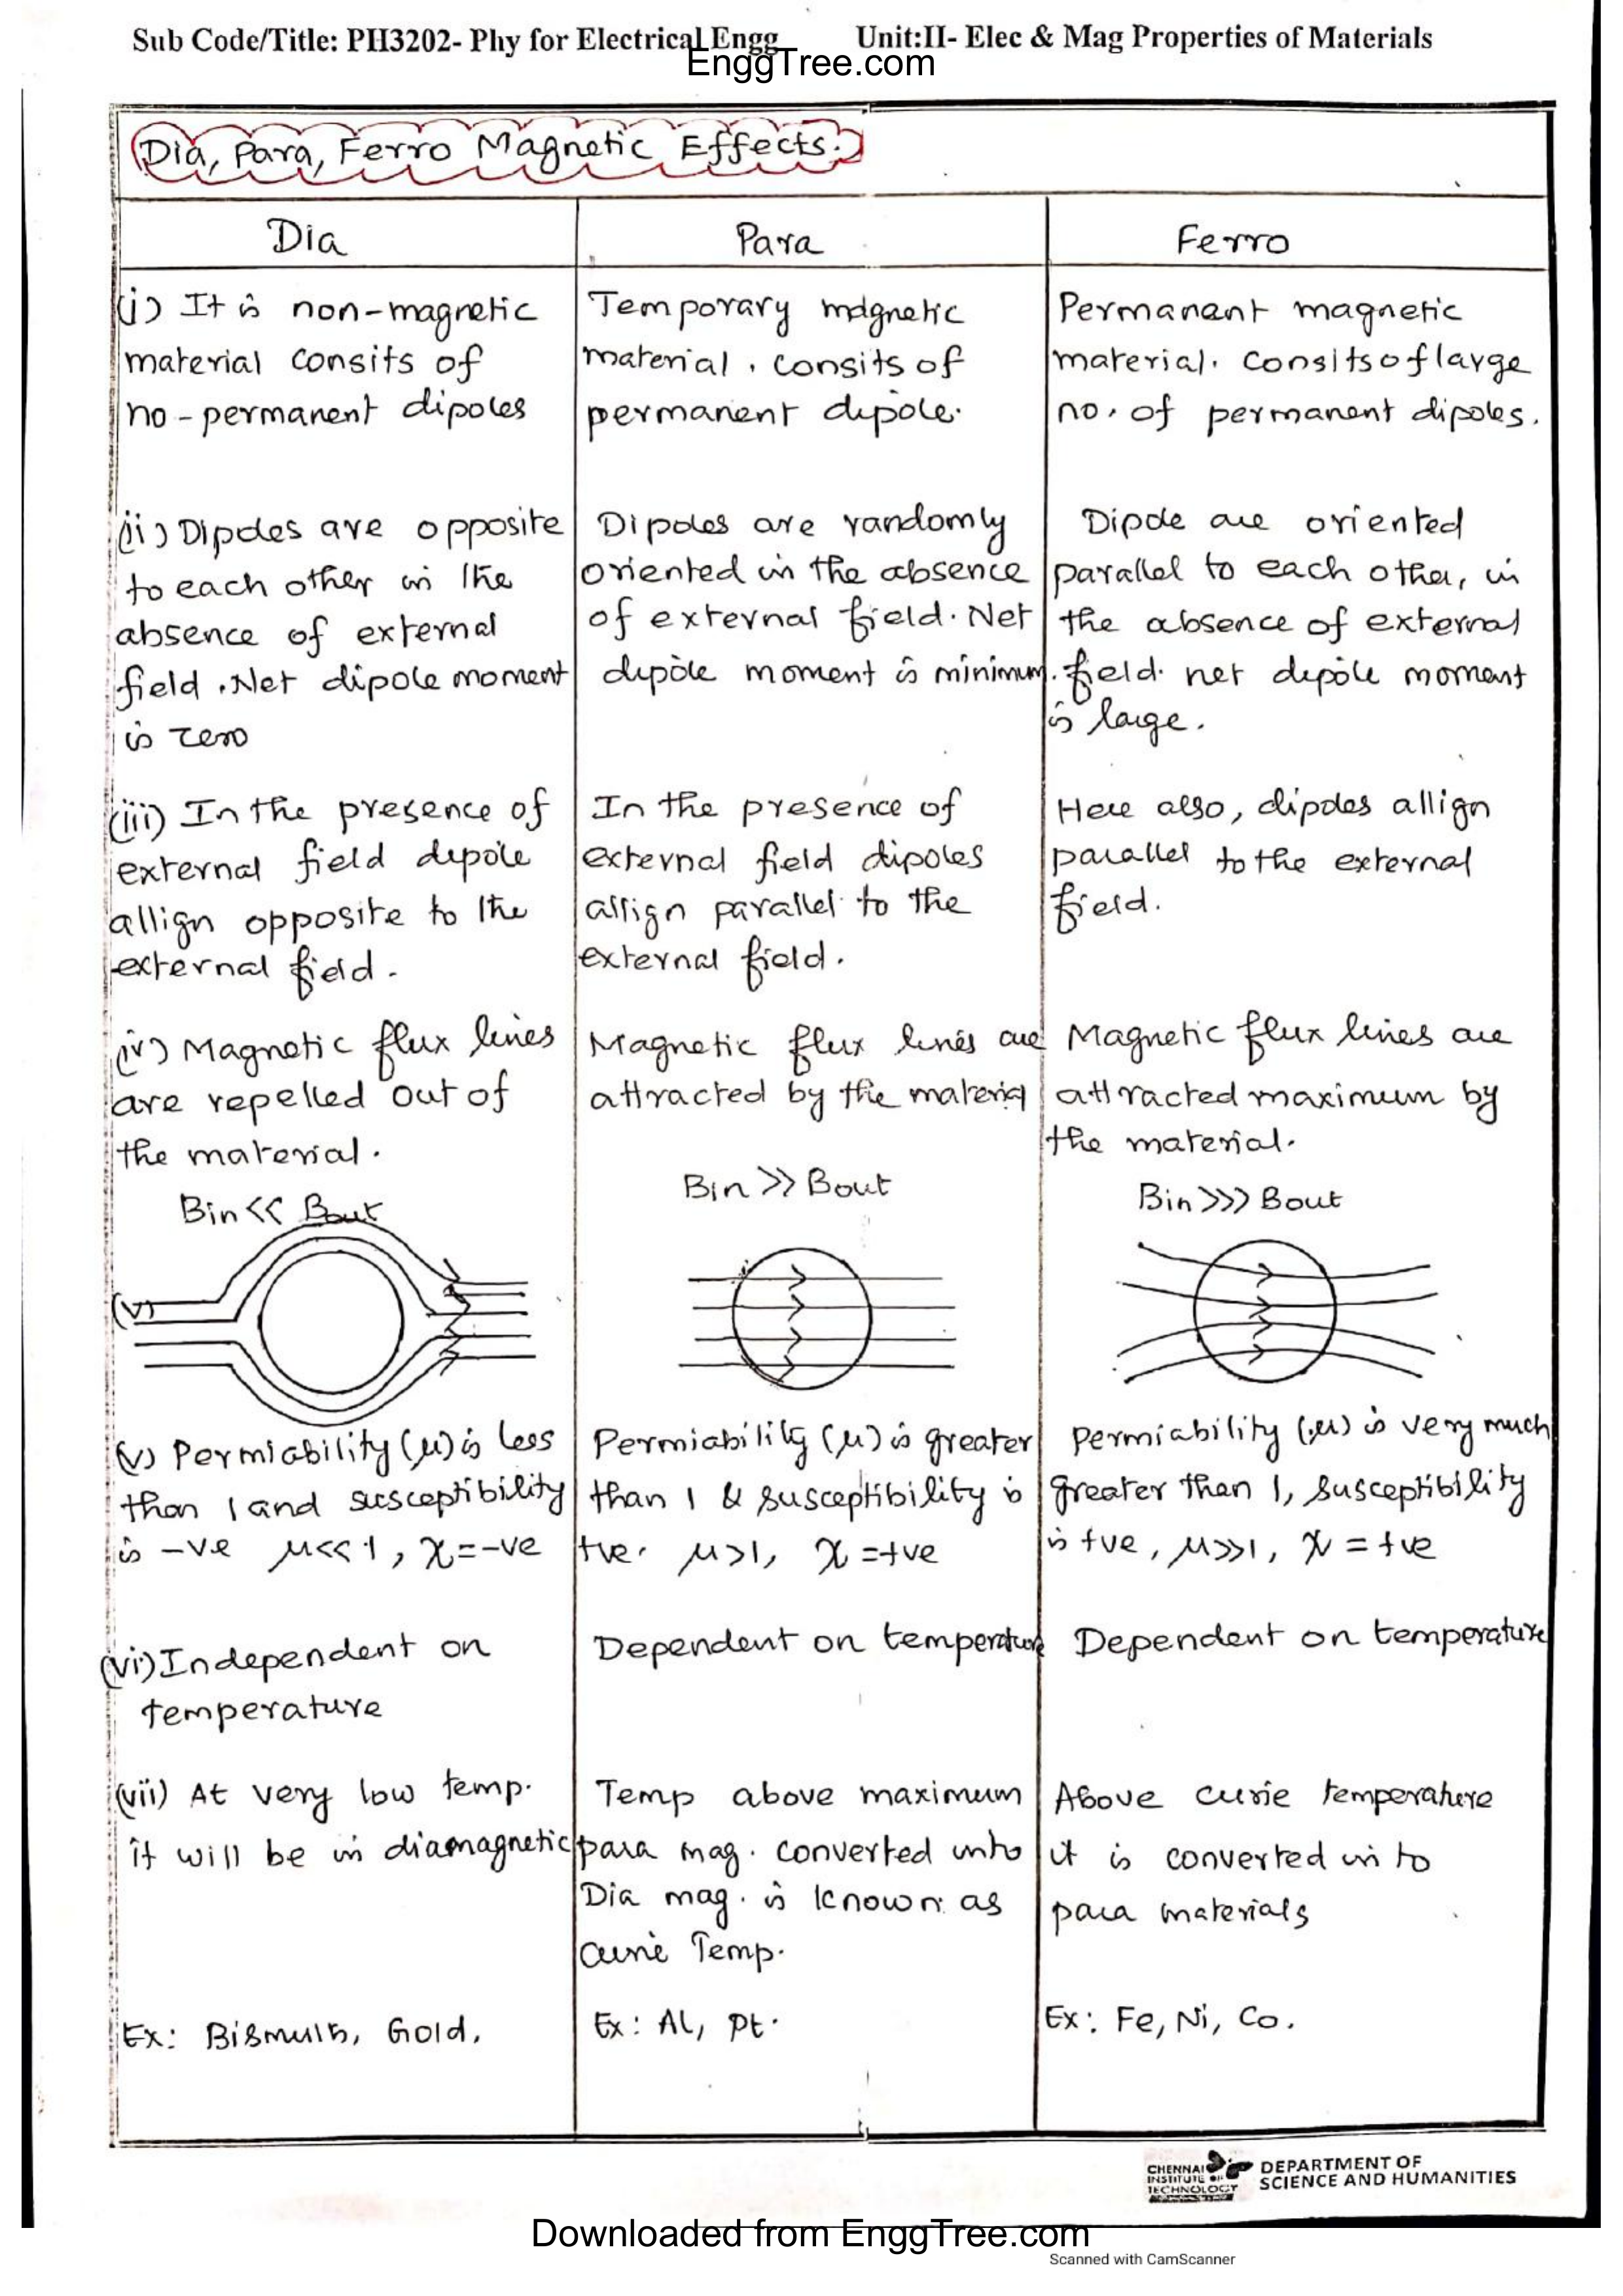 Sub Code/Title: PH3202- Phy for Electrical Engg Unit:II- Elec & Mag Properties of Materials
EnggTree.com
Dia, Para, Ferro Magnetic Effects.
Dia
Para
Ferro
(i) It is non-magnetic
material consits of
no-permanent dipoles
Temporary magnetic
material. consits of
permanent dipole.
Permanant magnetic
material. consits of large
no. of permanent dipoles.
(ii) Dipoles are opposite
to each other in the
absence of external
field. Net dipole moment
is zero
Dipoles are randomly
oriented in the absence
of external field. Net
dipole moment is minimum.
Dipole are oriented
parallel to each other, in
the absence of external
field. net dipole moment
is large.
(iii) In the presence of
external field dipole
allign opposite to the
external field.
In the presence of
external field dipoles
allign parallel to the
external field.
Here also, dipoles allign
parallel to the external
field.
(iv) Magnetic flux lines
are repelled out of
the material.
Bin << Bout
Magnetic flux lines are
attracted by the material
Bin >> Bout
Magnetic flux lines are
attracted maximum by
the material.
Bin >>> Bout
(v)
(v) Permiability (μ) is less
than 1 and susceptibility
is -ve μ<<1, χ=-ve
Permiability (μ) is greater
than 1 & susceptibility is
+ve. μ>1, χ=+ve
permiability (μ) is very much
greater than 1, susceptibility
is +ve, μ>>1, χ=+ve
(vi) Independent on
temperature
Dependent on temperature
Dependent on temperature
(vii) At very low temp.
it will be in diamagnetic
Temp above maximum
para mag. converted into
Dia mag. is known as
curie Temp.
Above curie temperature
it is converted in to
para materials
Ex: Bismuth, Gold,
Ex: Al, Pt.
Ex: Fe, Ni, Co.
CHENNAI
INSTITUTE OF
TECHNOLOGY
DEPARTMENT OF
SCIENCE AND HUMANITIES
Downloaded from EnggTree.com
Scanned with CamScanner